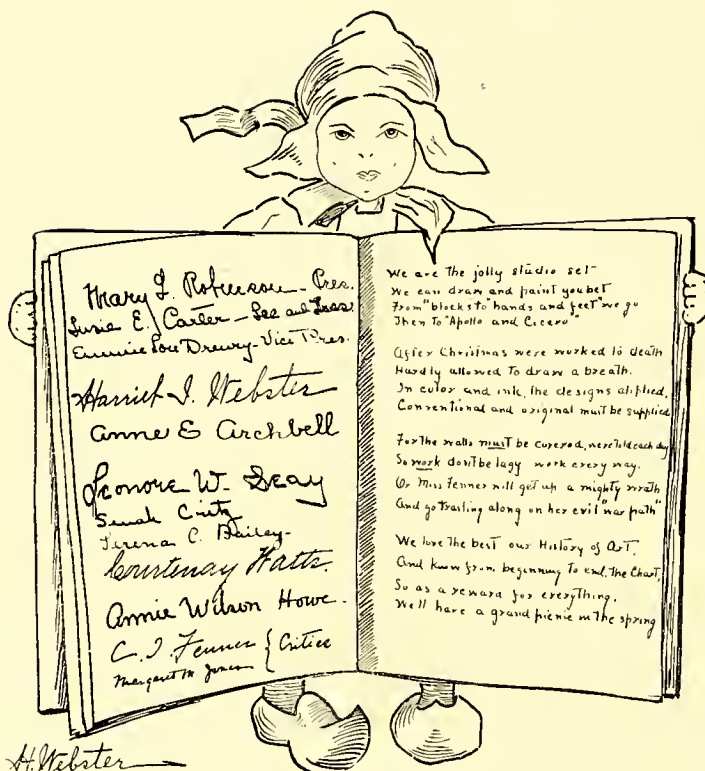 Mary F. Robinson - Pres.
Susie E. Carter - Sec and Treas.
Emmie Lou Drewry - Vice Pres.
Harriet I. Webster
Anne E Archbell
Leonore W. Seay
Sarah
C. Bailey -
Courtenay Watts.
Annie Wilson Howe.
C. I. Fenner { Critics
Margaret M. Jones
We are the jolly studio set
We can draw and paint you bet
From "blocks to "hands and feet" we go
Then to "Apollo and Cicero"
After Christmas were worked to death
Hardly allowed to draw a breath.
In color and ink, the designs
Conventional and original must be supplied
For the walls must be covered, were told each day
So work dont be lazy work every way.
Or Miss Fenner will get up a mighty wrath
And go trailing along on her evil "war path"
We love the best our History of Art,
And know from beginning to end, the Chart,
So as a reward for everything,
We'll have a grand picnic in the spring
H. Webster